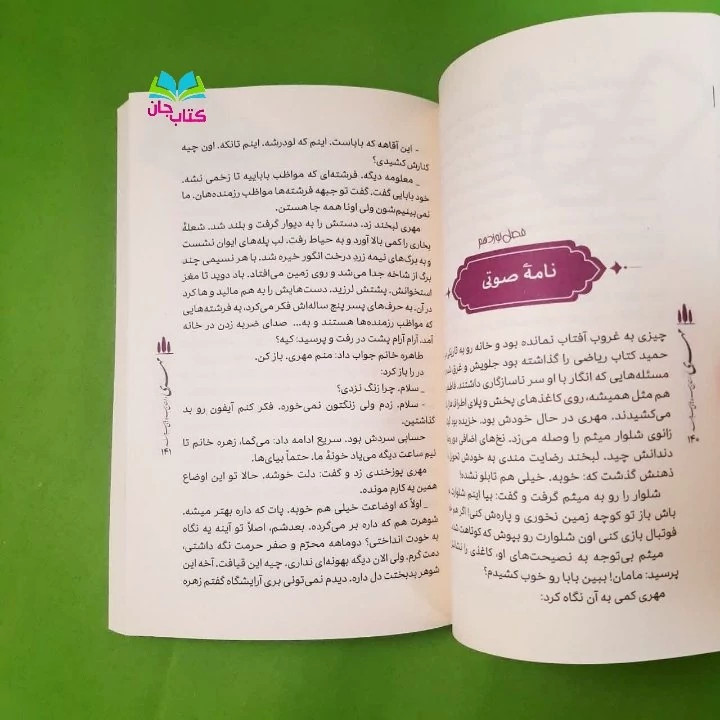 کتاب جان
فصل نوزدهم
نامهٔ صوتی
چیزی به غروب آفتاب نمانده بود و خانه رو به
حمید کتاب ریاضی را گذاشته بود جلویش و غرق
مسئله‌هایی که انگار با او سر ناسازگاری داشتند.
هم مثل همیشه، روی کاغذهای پخش و پلای اطراف
می‌کشیدند. مهری در حال خودش بود. خزیده بود
زانوی شلوار میثم را وصله می‌زد. نخ‌های اضافی
دندانش چید. لبخند رضایت مندی به خودش
ذهنش گذشت که: خوبه. خیلی هم تابلو نشده!
شلوار را رو به میثم گرفت و گفت: بیا اینم شلوارت
باش باز تو کوچه زمین نخوری و پاره‌ش کنی! اگر هم
فوتبال بازی کنی اون شلوارت رو بپوش که کوتاهت
میثم بی‌توجه به نصیحت‌های او، کاغذی را
پرسید: مامان! ببین بابا رو خوب کشیدم؟
مهری کمی به آن نگاه کرد:
۱۴۰
- این آقاهه که باباست. اینم که لودرشه. اینم تانکه. اون چیه
کنارش کشیدی؟
_ معلومه دیگه. فرشته‌ای که مواظب باباییه تا زخمی نشه.
خود بابایی گفت. گفت تو جبهه فرشته‌ها مواظب رزمنده‌هان. ما
نمی‌بینیم‌شون ولی اونا همه جا هستن.
مهری لبخند زد. دستش را به دیوار گرفت و بلند شد. شعلهٔ
بخاری را کمی بالا آورد و به حیاط رفت. لب پله‌های ایوان نشست
و به برگ‌های نیمه زردِ درخت انگور خیره شد. با هر نسیمی چند
برگ از شاخه جدا می‌شد و روی زمین می‌افتاد. باد دوید تا مغز
استخوانش. پشتش لرزید. دست‌هایش را به هم مالید و ها کرد
در آن. به حرف‌های پسر پنج ساله‌اش فکر می‌کرد، به فرشته‌هایی
که مواظب رزمنده‌ها هستند و به... صدای ضربه زدن در خانه
آمد. آرام آرام پشت در رفت و پرسید: کیه؟
طاهره خانم جواب داد: منم مهری. باز کن.
در را باز کرد:
_ سلام. چرا زنگ نزدی؟
- سلام. زدم ولی زنگتون نمی‌خوره. فکر کنم آیفون رو بد
گذاشتین.
حسابی سردش بود. سریع ادامه داد: می‌گما، زهره خانم تا
نیم ساعت دیگه می‌یاد خونهٔ ما. حتماً بیای‌ها.
مهری پوزخندی زد و گفت: دلت خوشه. حالا تو این اوضاع
همین یه کارم مونده.
_ اولاً که اوضاعت خیلی هم خوبه. پات که داره بهتر میشه.
شوهرت هم که داره بر می‌گرده. بعدشم، اصلاً تو آینه یه نگاه
به خودت انداختی؟ دوماهه محرّم و صفر حرمت نگه داشتی،
دمت گرم. ولی الان دیگه بهونه‌ای نداری. چیه این قیافت. آخه این
شوهر بدبختت دل داره. دیدم نمی‌تونی بری آرایشگاه گفتم زهره
۱۴۱